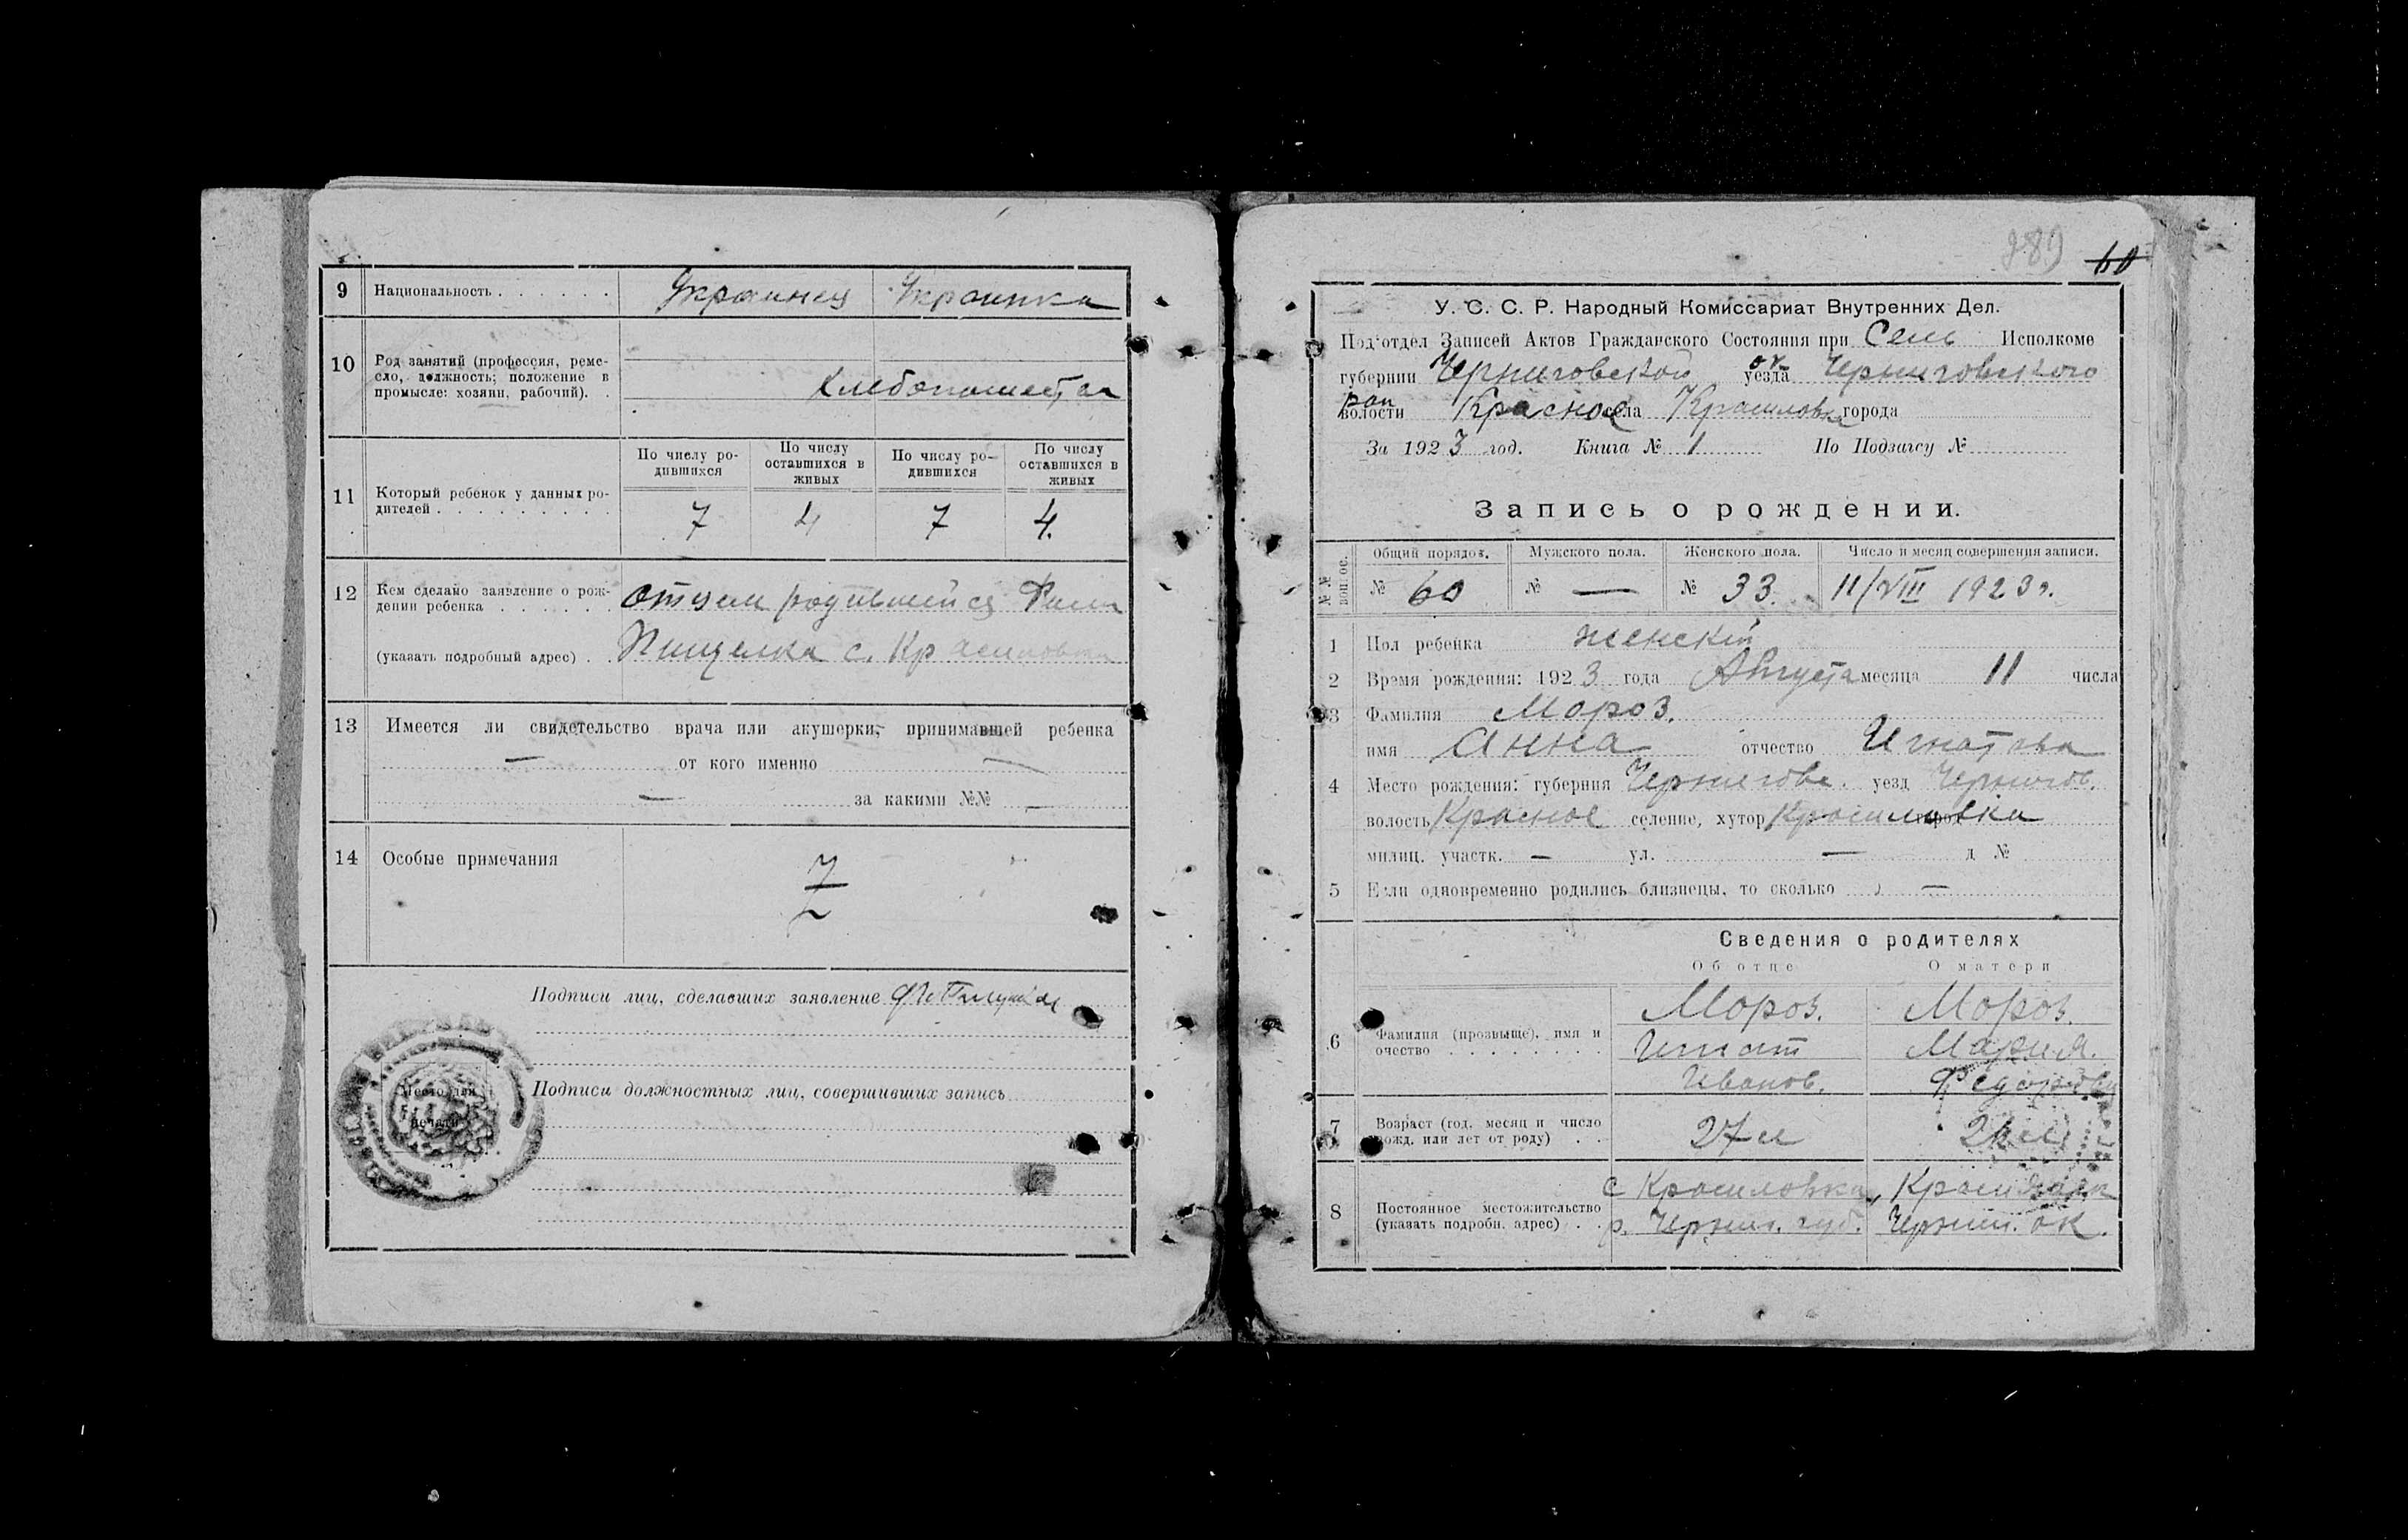 9 Национальность . . . . . . Украинец Украинка
10 Род занятий (профессия, реме-
сло, должность; положение в
промысле: хозяин, рабочий). .
Хлебопашество
По числу ро-
дившихся
По числу
оставшихся в
живых
По числу ро-
дившихся
По числу
оставшихся в
живых
11 Который ребенок у данных ро-
дителей . . . . . . . . . .
7 4 7 4.
12 Кем сделано заявление о рож-
дении ребенка . . . . . .
отцем родившейся
(указать подробный адрес) . . с. Красиловка
13 Имеется ли свидетельство врача или акушерки, принимавшей ребенка
— от кого именно —
— за какими №№ —
14 Особые примечания
Подписи лиц, сделавших заявление
Подписи должностных лиц, совершивших запись
Место для
печати
289 60
У. С. С. Р. Народный Комиссариат Внутренних Дел.
Под'отдел Записей Актов Гражданского Состояния при Сель Исполкоме
губернии Черниговской уезда ок Черниговского
волости рай Красное села Красиловка города
За 1923 год. Книга № 1 По Подзагсу №
Запись о рождении.
№№ вопрос.
Общий порядок. Мужского пола. Женского пола. Число и месяц совершения записи.
№ 60 № — № 33. 11/VIII 1923 г.
1 Пол ребенка женский
2 Время рождения: 1923 года Августа месяца 11 числа
3 Фамилия Мороз.
имя Анна отчество Игнатова
4 Место рождения: губерния Чернигове. уезд Чернигов.
волость Красное селение, хутор Красиловка город
милиц. участк. — ул. — д №
5 Если одновременно родились близнецы, то сколько —
Сведения о родителях
Об отце О матери
6 Фамилия (прозвище), имя и
очество . . . . . . . .
Мороз. Мороз.
Игнат Мария.
Иванов. Федоровна
7 Возраст (год, месяц и число
рожд. или лет от роду) . .
27 л
8 Постоянное местожительство
(указать подробн. адрес) . .
с Красиловка, Красиловка
р. Черниг. губ. Черниг. ок.